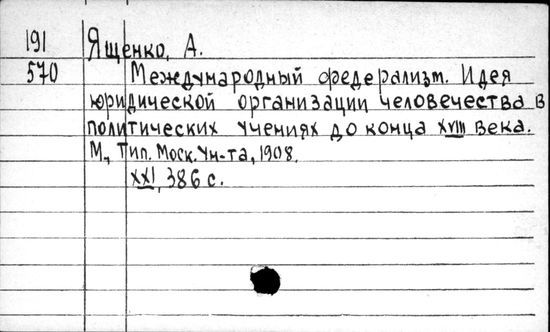 191 Ященко, А.
570 Международный федерализм. Идея
юридической организации человечества в
политических учениях до конца XVIII века.
М., Тип. Моск. Ун-та, 1908.
XXI, 386 с.